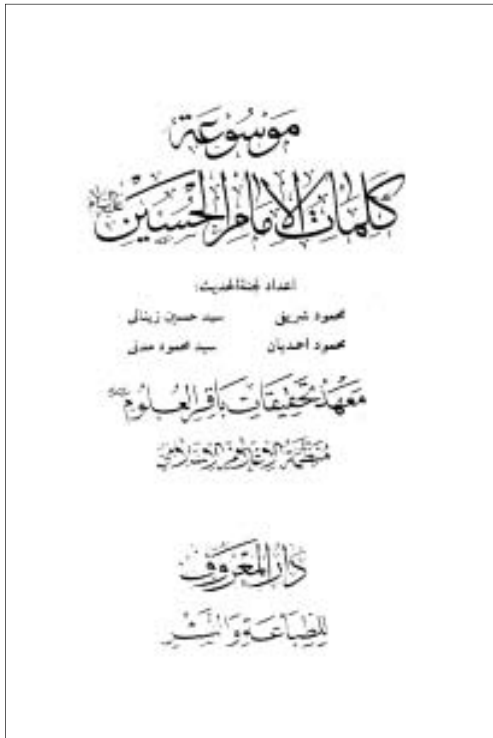 موسوعة
كلمات الإمام الحسين عليه السلام
اعداد لجنة الحديث:
محمود شريفي سيد حسين زينالي
محمود احمديان سيد محمود مدني
معهد تحقيقات باقر العلوم
منظمة الإعلام الإسلامي
دار المعروف
للطباعة والنشر